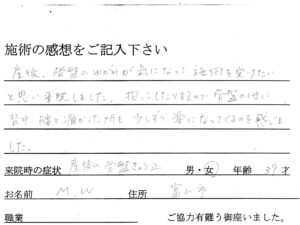 施術の感想をご記入下さい
産後、骨盤のゆがみが気になって施術を受けたい
と思い来院しました。抱っこしたりするので骨盤の他に
背中、腰と痛かった所も少しずつ楽になってくるのを感じま
した。
来院時の症状 産後の骨盤きょう正 男・女 年齢 39才
お名前 M.W 住所 富山市
職業 ご協力有難う御座いました。